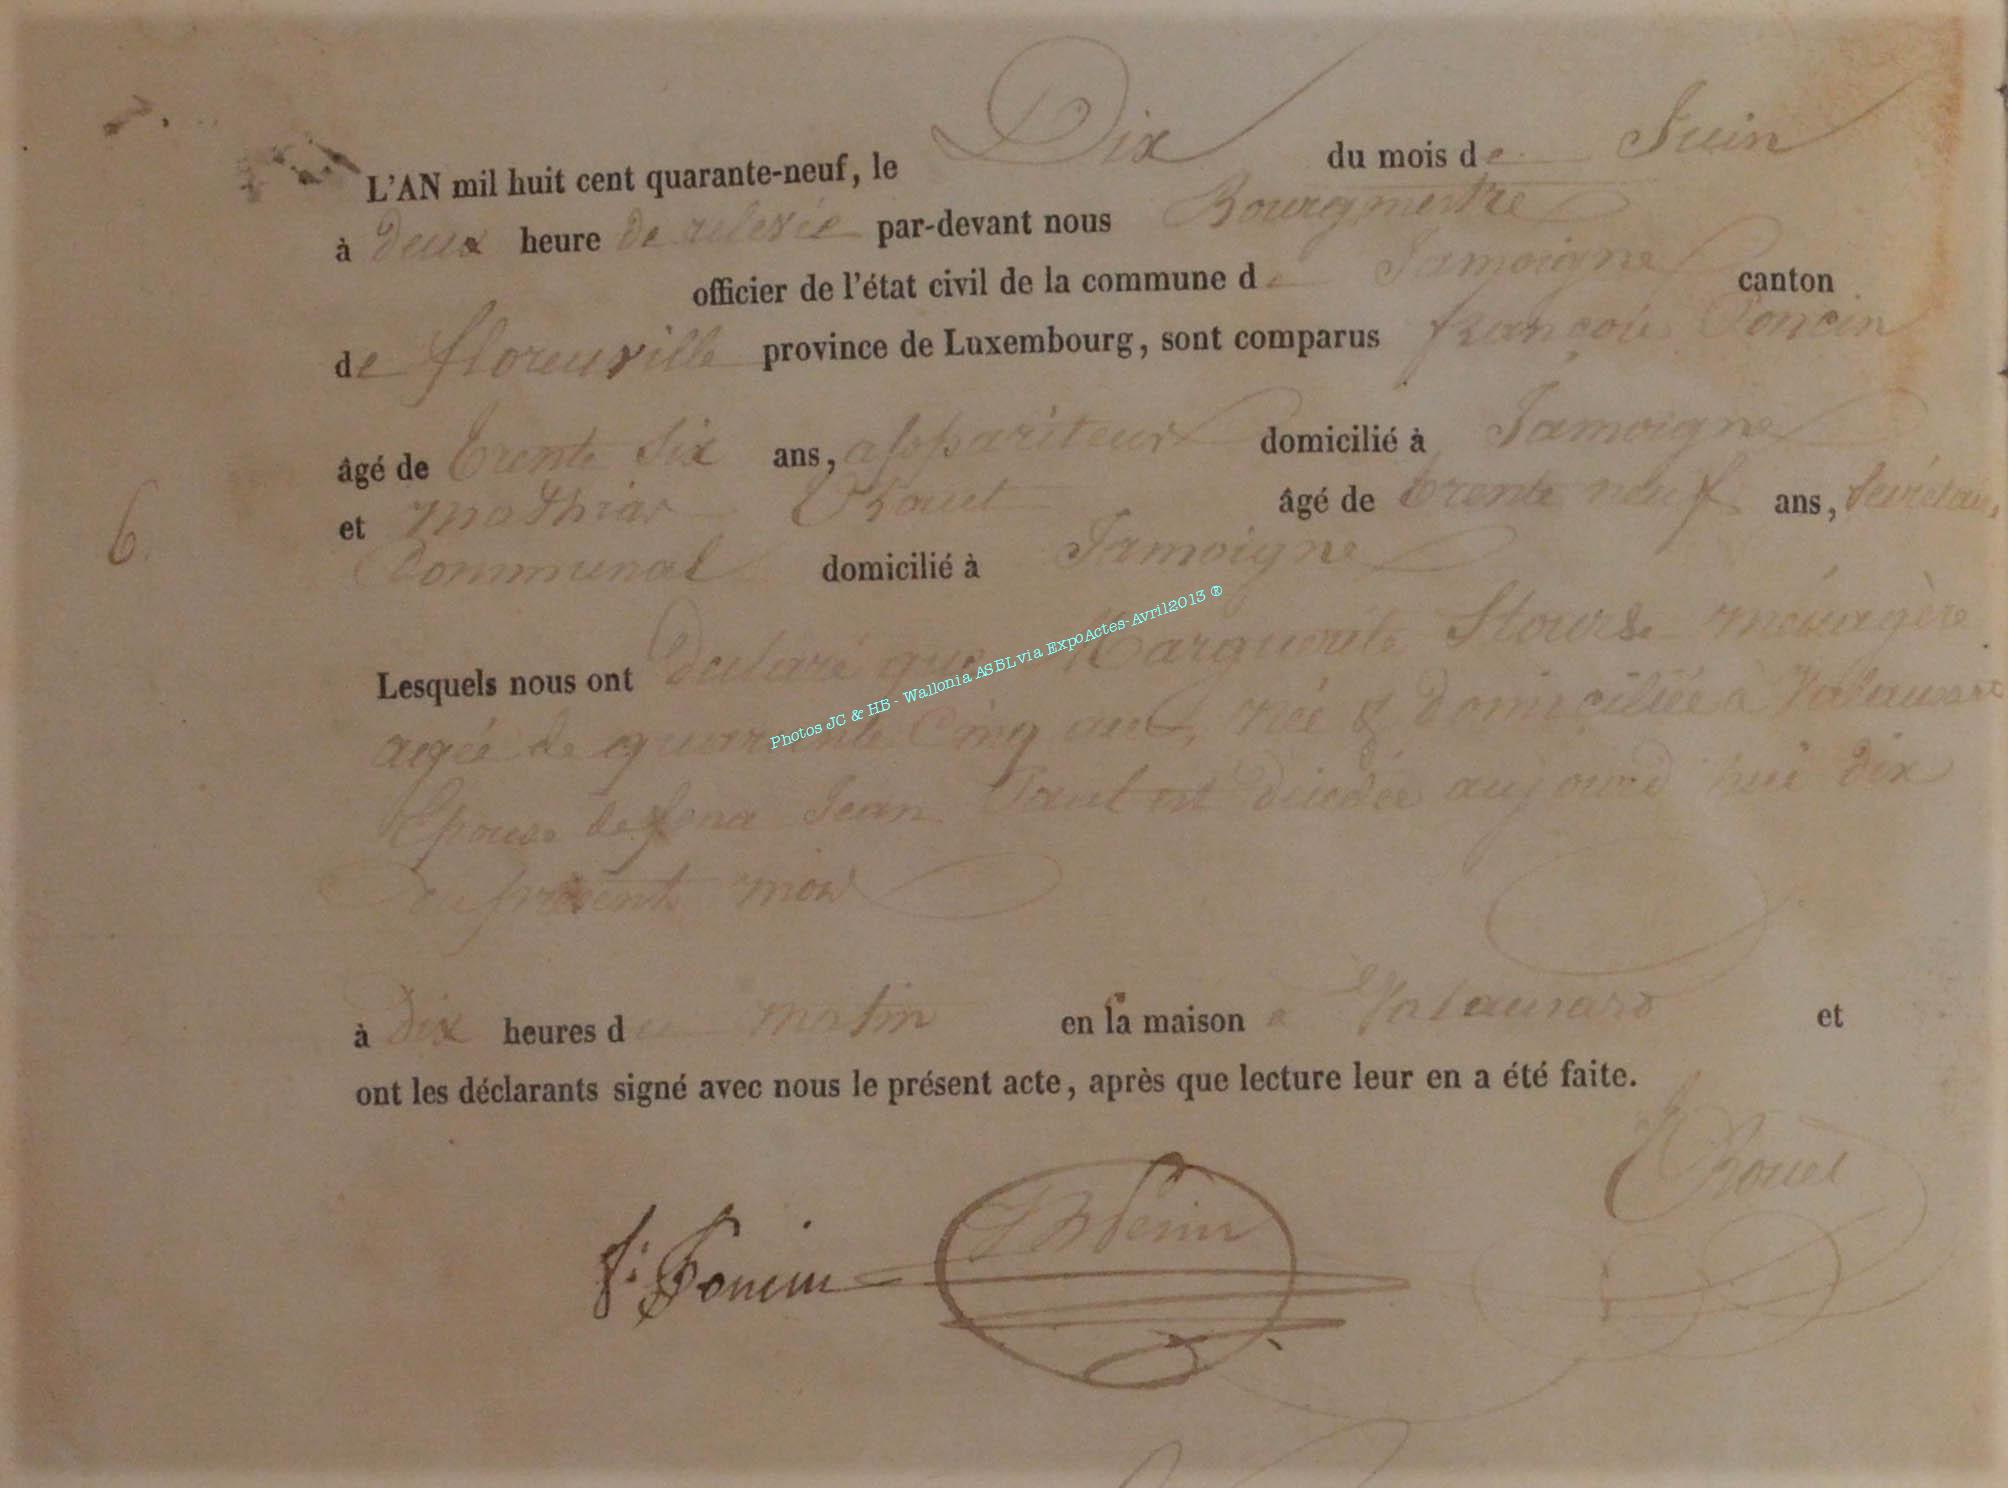 L'AN mil huit cent quarante-neuf, le Dix du mois de Juin
à deux heure de relevée par-devant nous Bourgmestre
officier de l'état civil de la commune de Jamoigne canton
de florenville province de Luxembourg, sont comparus françois Poncin
âgé de trente six ans, appariteur domicilié à Jamoigne
et mathias âgé de trente neuf ans,
6.
Communal domicilié à Jamoigne
Lesquels nous ont déclaré que Marguerite ménagère
agée de quarante Cinq ans, née & domiciliée à
Epouse de Jean est décédée aujourd'hui dix
du présent mois
à dix heures du matin en la maison à et
ont les déclarants signé avec nous le présent acte, après que lecture leur en a été faite.
f. Poncin
Photos JC & HB - Wallonia ASBLvia ExpoActes-Avril2013 ®